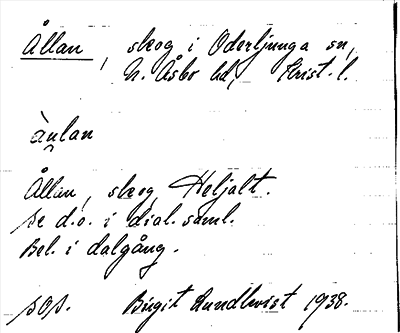 Ållan, skog i Oderljunga sn,
N. Åsbo hd, Krist. l.
àulan
Ållan, skog, Heljalt.
se d.o. i dial. saml.
Bel. i dalgång.
sos. Birgit Lundkvist 1938.